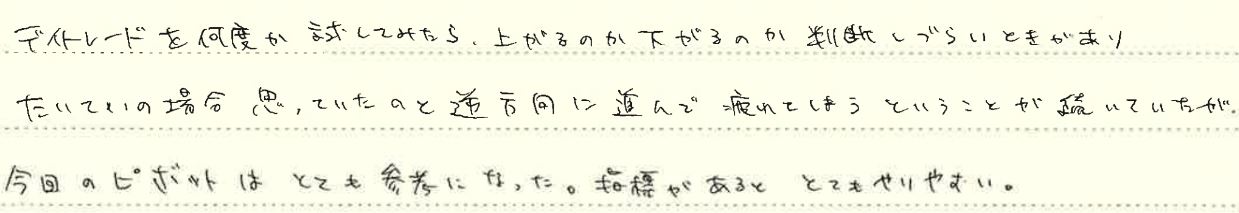 デイトレードを何度か試してみたら、上がるのか下がるのか判断しづらいときがあり
たいていの場合思っていたのと逆方向に進んで疲れてしまうということが続いていたが、
今回のピボットはとても参考になった。指標があるととてもやりやすい。